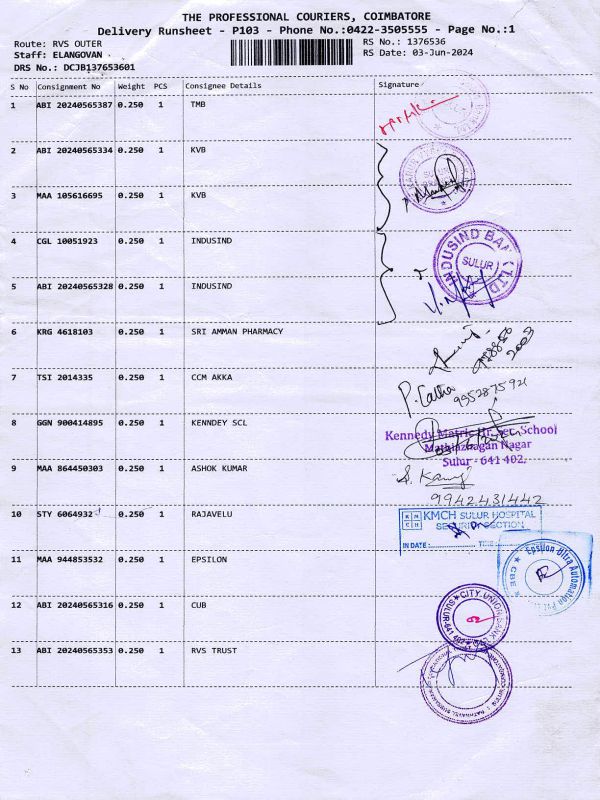 THE PROFESSIONAL COURIERS, COIMBATORE
Delivery Runsheet - P103 - Phone No.:0422-3505555 - Page No.:1
Route: RVS OUTER
RS No.: 1376536
Staff: ELANGOVAN
RS Date: 03-Jun-2024
DRS No.: DCJB137653601
S No Consignment No Weight PCS Consignee Details Signature
1 ABI 20240565387 0.250 1 TMB
2 ABI 20240565334 0.250 1 KVB
SULUR
3 MAA 105616695 0.250 1 KVB
4 CGL 10051923 0.250 1 INDUSIND
INDUSIND BANK LTD
SULUR
5 ABI 20240565328 0.250 1 INDUSIND
6 KRG 4618103 0.250 1 SRI AMMAN PHARMACY
7 TSI 2014335 0.250 1 CCM AKKA
8 GGN 900414895 0.250 1 KENNDEY SCL
Kennedy Matric Hr. Sec. School
Mathiazhagan Nagar
Sulur - 641 402.
9 MAA 864450303 0.250 1 ASHOK KUMAR
9942431442
10 STY 6064932 0.250 1 RAJAVELU
KMCH SULUR HOSPITAL
SECURITY SECTION
IN DATE: TIME:
11 MAA 944853532 0.250 1 EPSILON
Epsilon Ultra Automation Pvt Ltd
CBE
12 ABI 20240565316 0.250 1 CUB
CITY UNION BANK
SULUR-641 402
13 ABI 20240565353 0.250 1 RVS TRUST